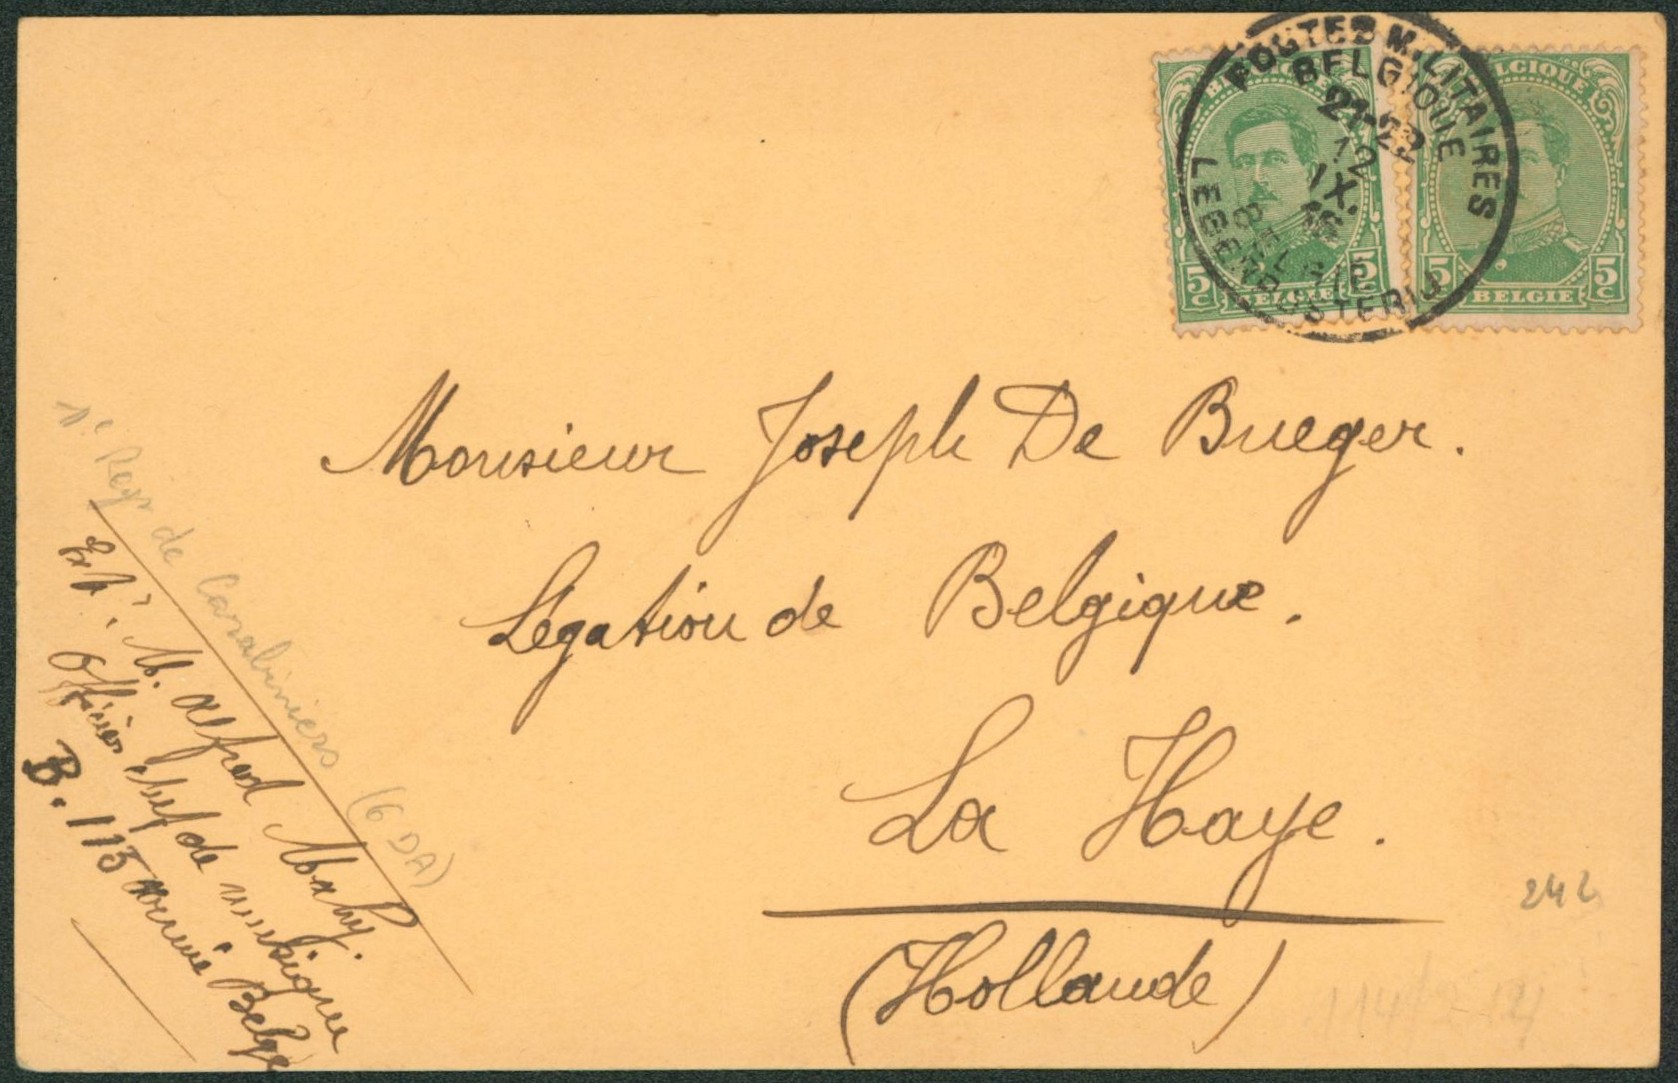 POSTES MILITAIRES
BELGIQUE
21-22
12
IX.
16
BELGIE
LEGERPOSTERIJ
BELGIQUE
5c
5c
BELGIE
BELGIQUE
5c
5c
BELGIE
Monsieur Joseph De Brueger.
Légation de Belgique.
La Haye.
(Hollande)
1r Regt de Carabiniers (6 DA)
Ext: M. Alfred Mahy.
Officier chef de musique
B. 113 Armée Belge
242